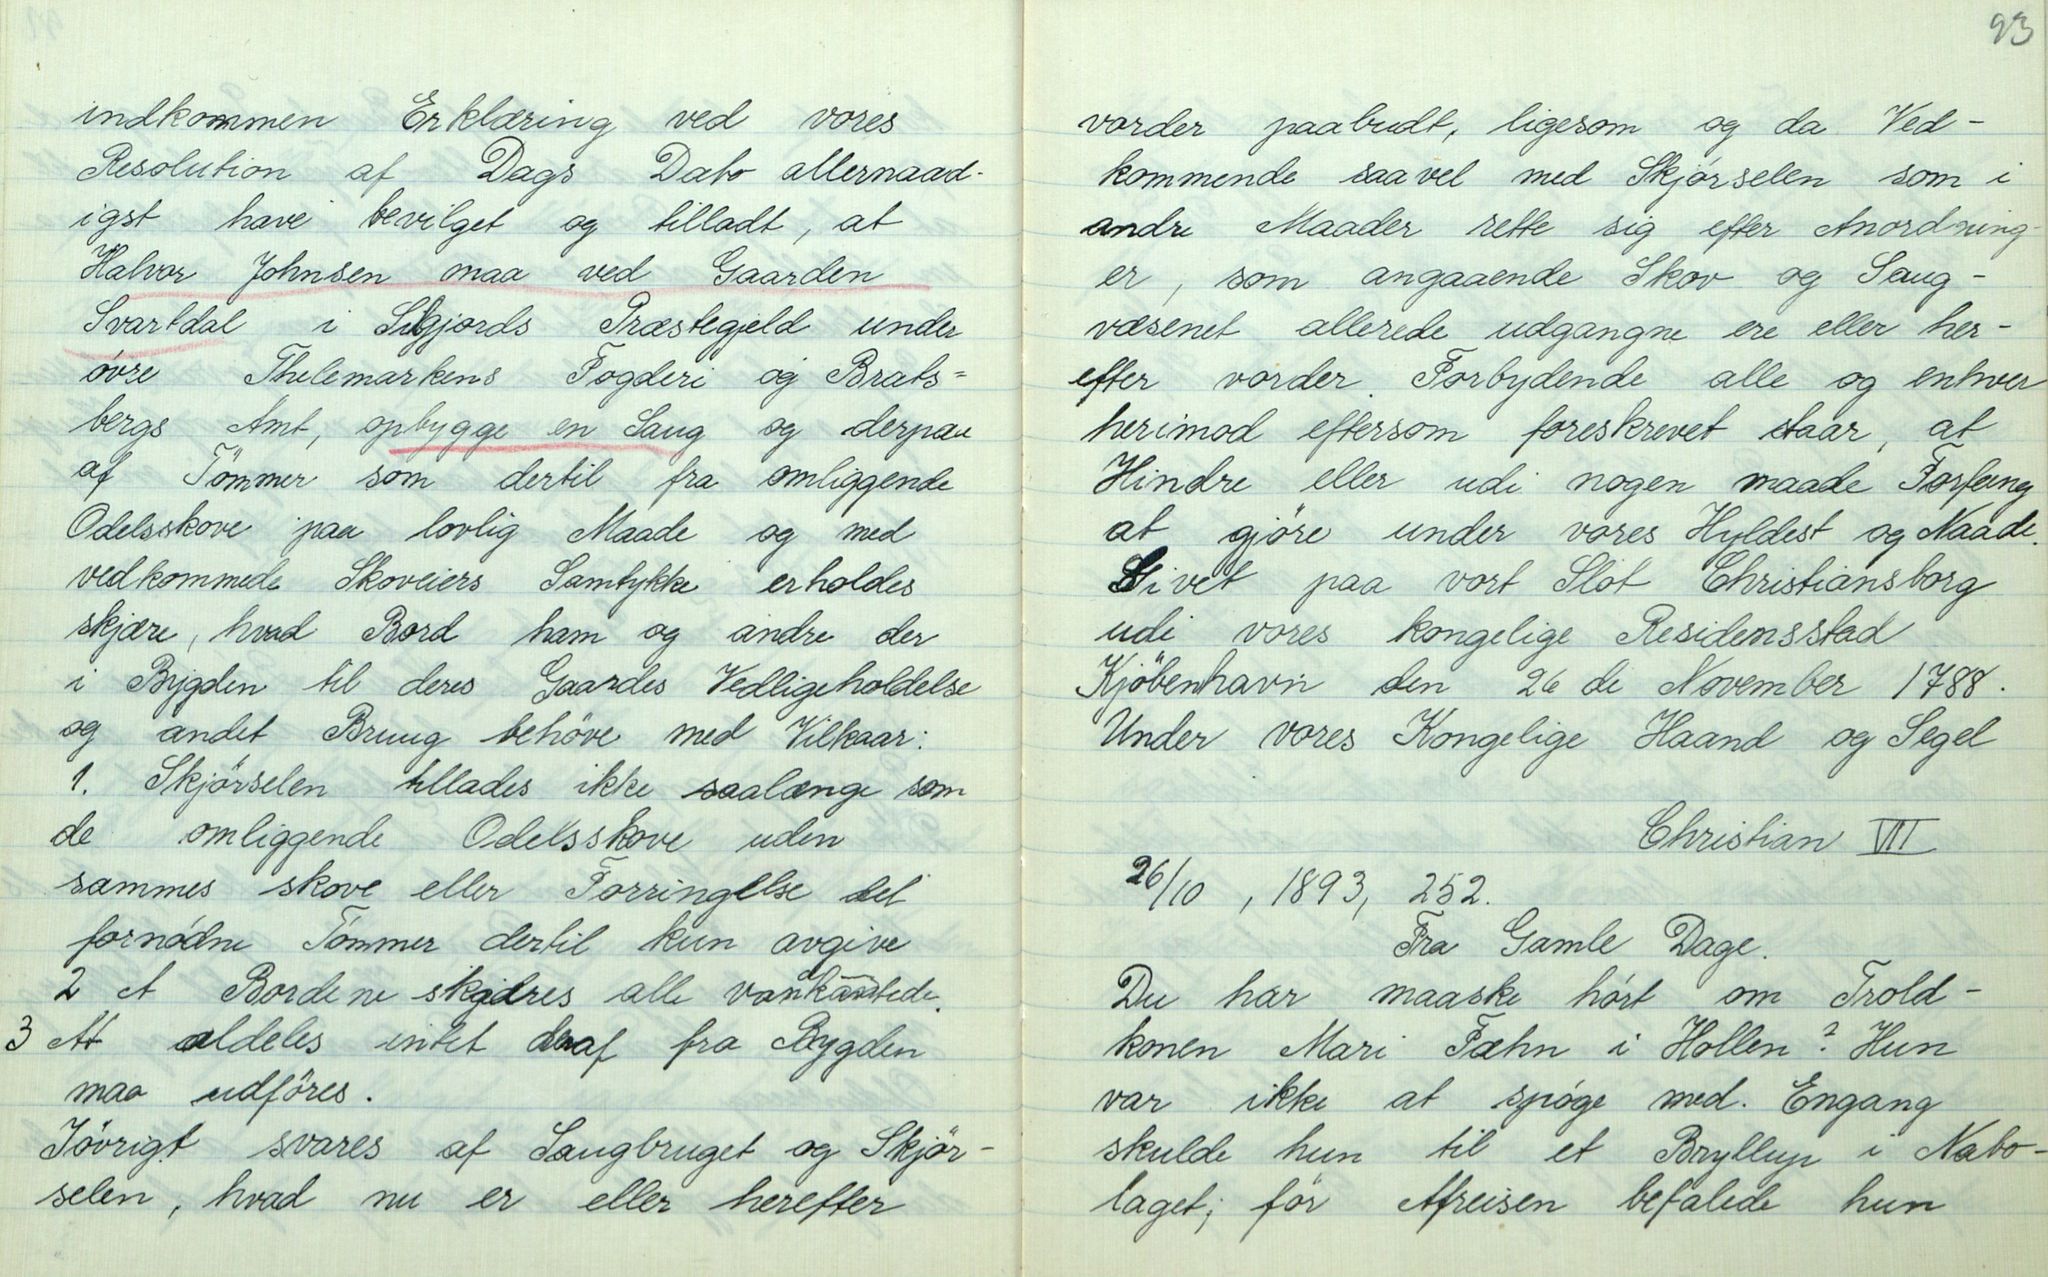 indkommen Erklæring ved vores
Resolution af Dags Dato allernaad-
igst have bevilget og tilladt, at
Halvor Johnsen maa ved Gaarden
Svartdal i Silgjords Præstegjeld under
övre Thelemarkens Fogderi og Brats=
bergs Amt, opbygge en Saug og derpaa
af Tömmer som dertil fra omliggende
Odelsskove paa lovlig Maade og med
vedkommede Skoveiers Samtykke erholdes
skjære, hvad Bord ham og andre der
i Bygden til deres Gaardes Vedligeholdelse
og andet Bruug behöve med Vilkaar:
1. Skjörselen tillades ikke saalænge som
de omliggende Odelsskove uden
sammes skove eller Forringelse det
fornödne Tömmer dertil kun avgive
2 At Bordene skjæres alle vankantede.
3 At aldeles intet deraf fra Bygden
maa udföres.
Iövrigt svares af Saugbruget og Skjör-
selen, hvad nu er eller herefter
93
vorder paabudt, ligesom og da Ved-
kommende saavel med Skjörselen som i
andre Maader rette sig efter Anordning-
er, som angaaende Skov og Saug-
væsenet allerede udgangne ere eller her-
efter vorder. Forbydende alle og enhver
herimod eftersom foreskrevet staar, at
Hindre eller udi nogen maade Forfang
at gjöre under vores Hyldest og Naade.
Givet paa vort Slot Christiansborg
udi vores kongelige Residensstad
Kjöbenhavn den 26 de November 1788.
Under vores Kongelige Haand og Segel
Christian VII
26/10, 1893, 252.
Fra Gamle Dage.
Du har maaske hört om Trold-
konen Mari Fæhn i Hollen? Hun
var ikke at spöge med. Engang
skulde hun til et Bryllup i Nabo-
laget; för Afreisen befalede hun